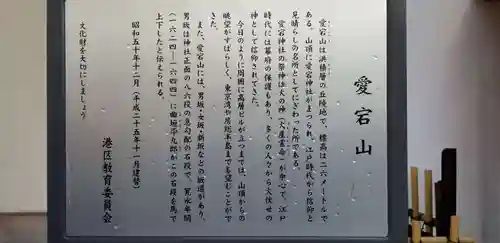 愛宕山
愛宕山は洪積層の丘陵地で、標高は二六メートルで
ある。山頂に愛宕神社がまつられ、江戸時代から信仰と
見晴らしの名所としてにぎわった所である。
愛宕神社の祭神は火の神（火産霊命）が中心で、江戸
時代には幕府の保護もあり、多くの人々から火伏せの
神として信仰されてきた。
今日のように周囲に高層ビルが立つまでは、山頂からの
眺望がすばらしく、東京湾や房総半島までを望むことがで
きた。
また、愛宕山には、男坂・女坂・新坂などの坂道があり、
男坂は神社正面の八六段の急勾配の石段で、寛永年間
（一六二四―一六四四）に曲垣平九郎がこの石段を馬で
上下したと伝えられる。
昭和五十年十二月（平成二十五年十一月建替）
港区教育委員会
文化財を大切にしましょう